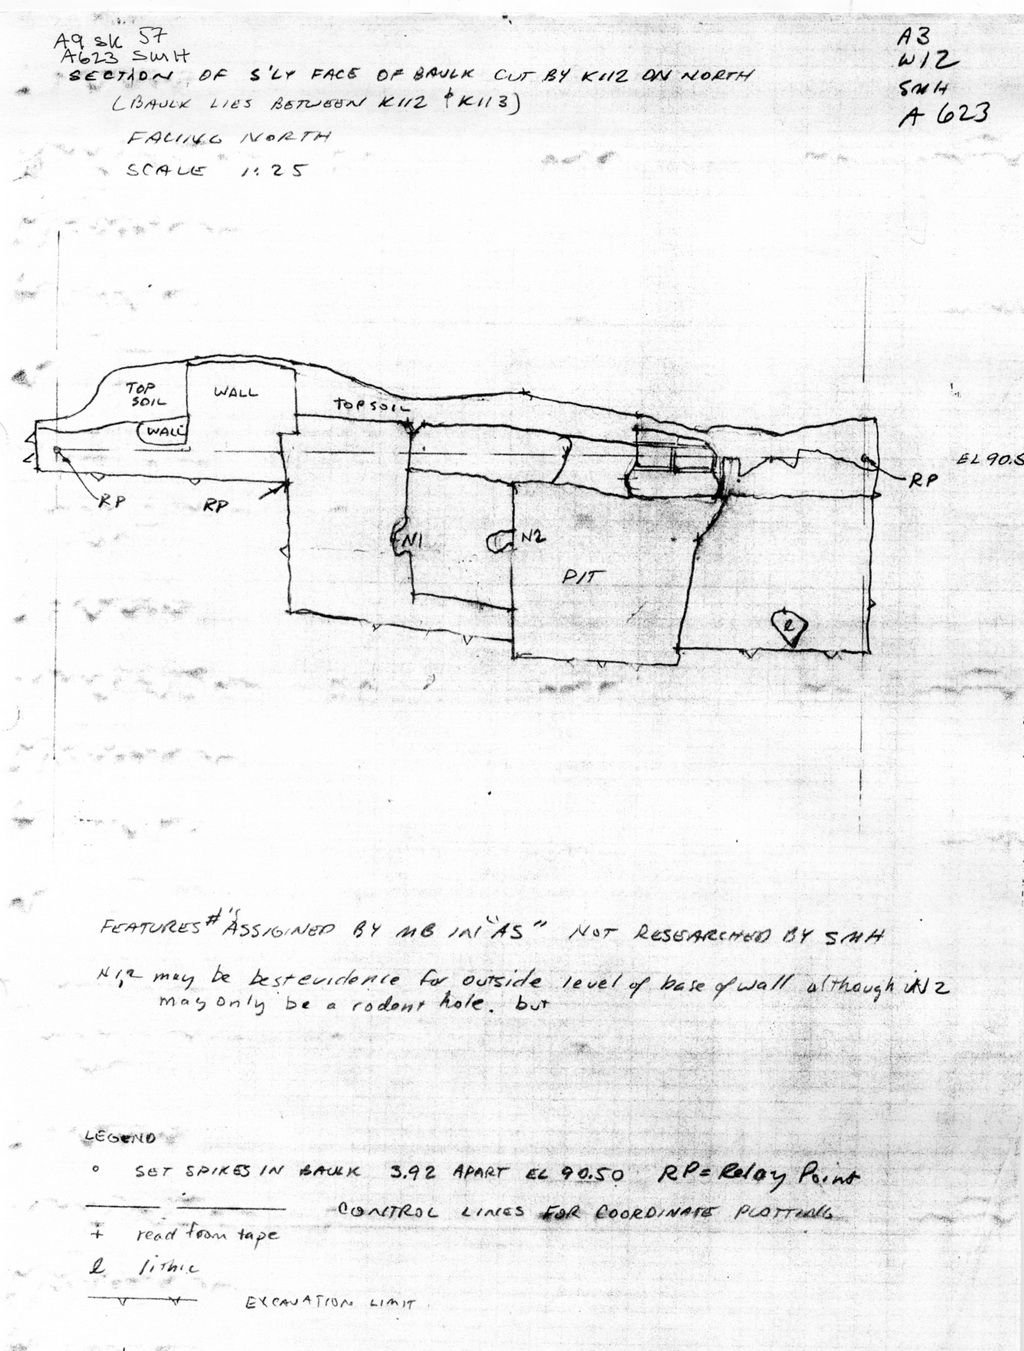 A9 SK 57
A623 SMH
SECTION OF S'LY FACE OF BAULK CUT BY K112 ON NORTH
(BAULK LIES BETWEEN K112 & K113)
FACING NORTH
SCALE 1:25
A3
W12
SMH
A 623
TOP
SOIL
WALL
TOPSOIL
WALL
EL 90.5
RP
RP
RP
N1
N2
PIT
l
FEATURES #'s ASSIGINED BY MB IN "A5" NOT RESEARCHED BY SMH
N1,2 may be best evidence for outside level of base of wall although N2
may only be a rodent hole. but
LEGEND
o SET SPIKES IN BAULK 3.92 APART EL 90.50 RP = Relay Point
CONTROL LINES FOR COORDINATE PLOTTING
+ read from tape
l lithic
EXCAVATION LIMIT